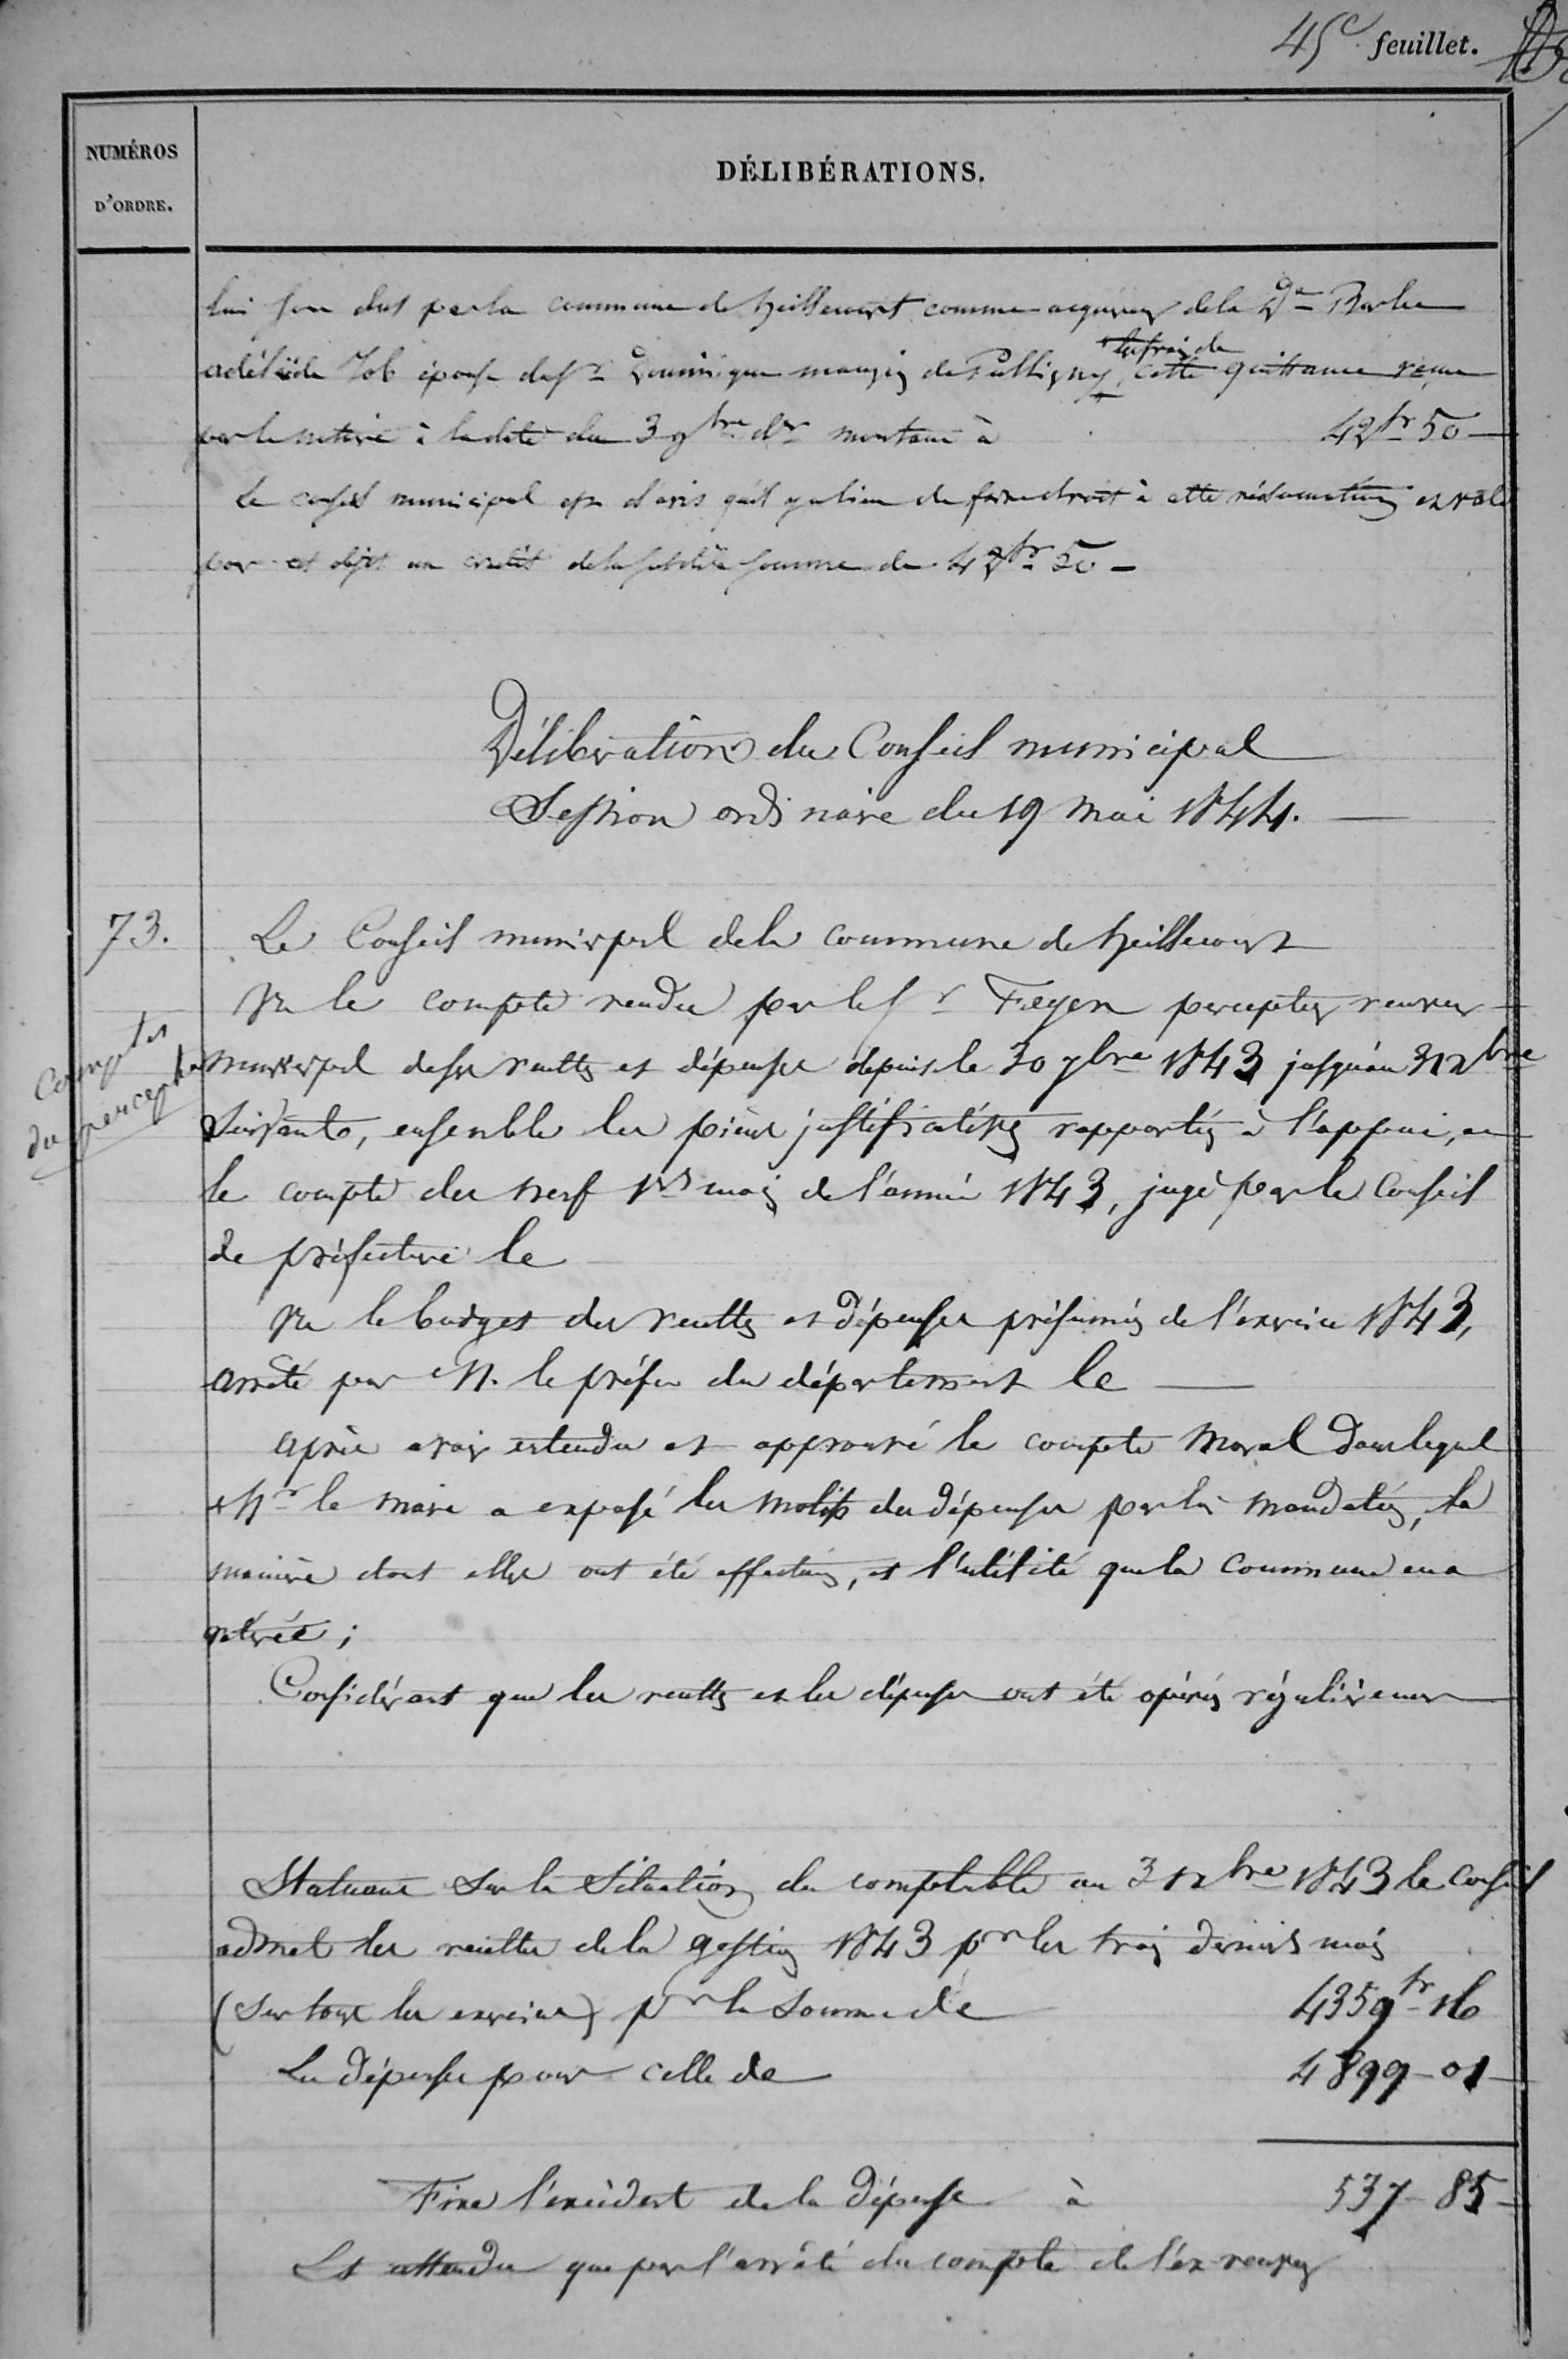 45e feuillet.
NUMÉROS
D'ORDRE.
DÉLIBÉRATIONS.
lui sont dus par la commune de heillecourt comme acquéreur de la De Barbe
adélaïde Job épouse du Sr Dominique mangin de Pulligny, cette quittance reçue
les frais de
par le notaire à la date du 3 9bre dr montant à 42fr 50
Le conseil municipal est d'avis qu'il y a lieu de faire droit à cette réclamation et vote
pour cet objet un crédit de la susdite somme de 42fr 50
Délibération du Conseil municipal
Session ordinaire du 19 mai 1844.
73.
Comptes
du percepteur
Le Conseil municipal de la commune de heillecourt
Vu le compte rendu par le Sr Feyen percepteur receveur
municipal de ses recettes et dépenses depuis le 30 7bre 1843 jusqu'au 31 xbre
Suivante, ensemble les pièces justificatives rapportées à l'appui, et
le compte des neuf 1ers mois de l'année 1843, jugé par le Conseil
de préfecture le
Vu le budget des recettes et dépenses présumées de l'exercice 1843,
arrêté par M. le préfet du département le
après avoir entendu et approuvé le compte moral dans lequel
Mr le maire a exposé les motifs des dépenses par lui mandatées, la
manière dont elles ont été effectuées, et l'utilité que la commune en a
retirée ;
Considérant que les recettes et les dépenses ont été opérées régulièrement
Statuant sur la situation du comptable au 31 xbre 1843 le conseil
admet les recettes de la gestion 1843 pr les trois derniers mois
(sur tous les exercices) pr la somme de 4359fr 16
Les dépenses pour celle de 4899-01
Fixe l'excédent de la dépense à 537-85
Et attendu que par l'arrêté du compte de l'ex-receveur